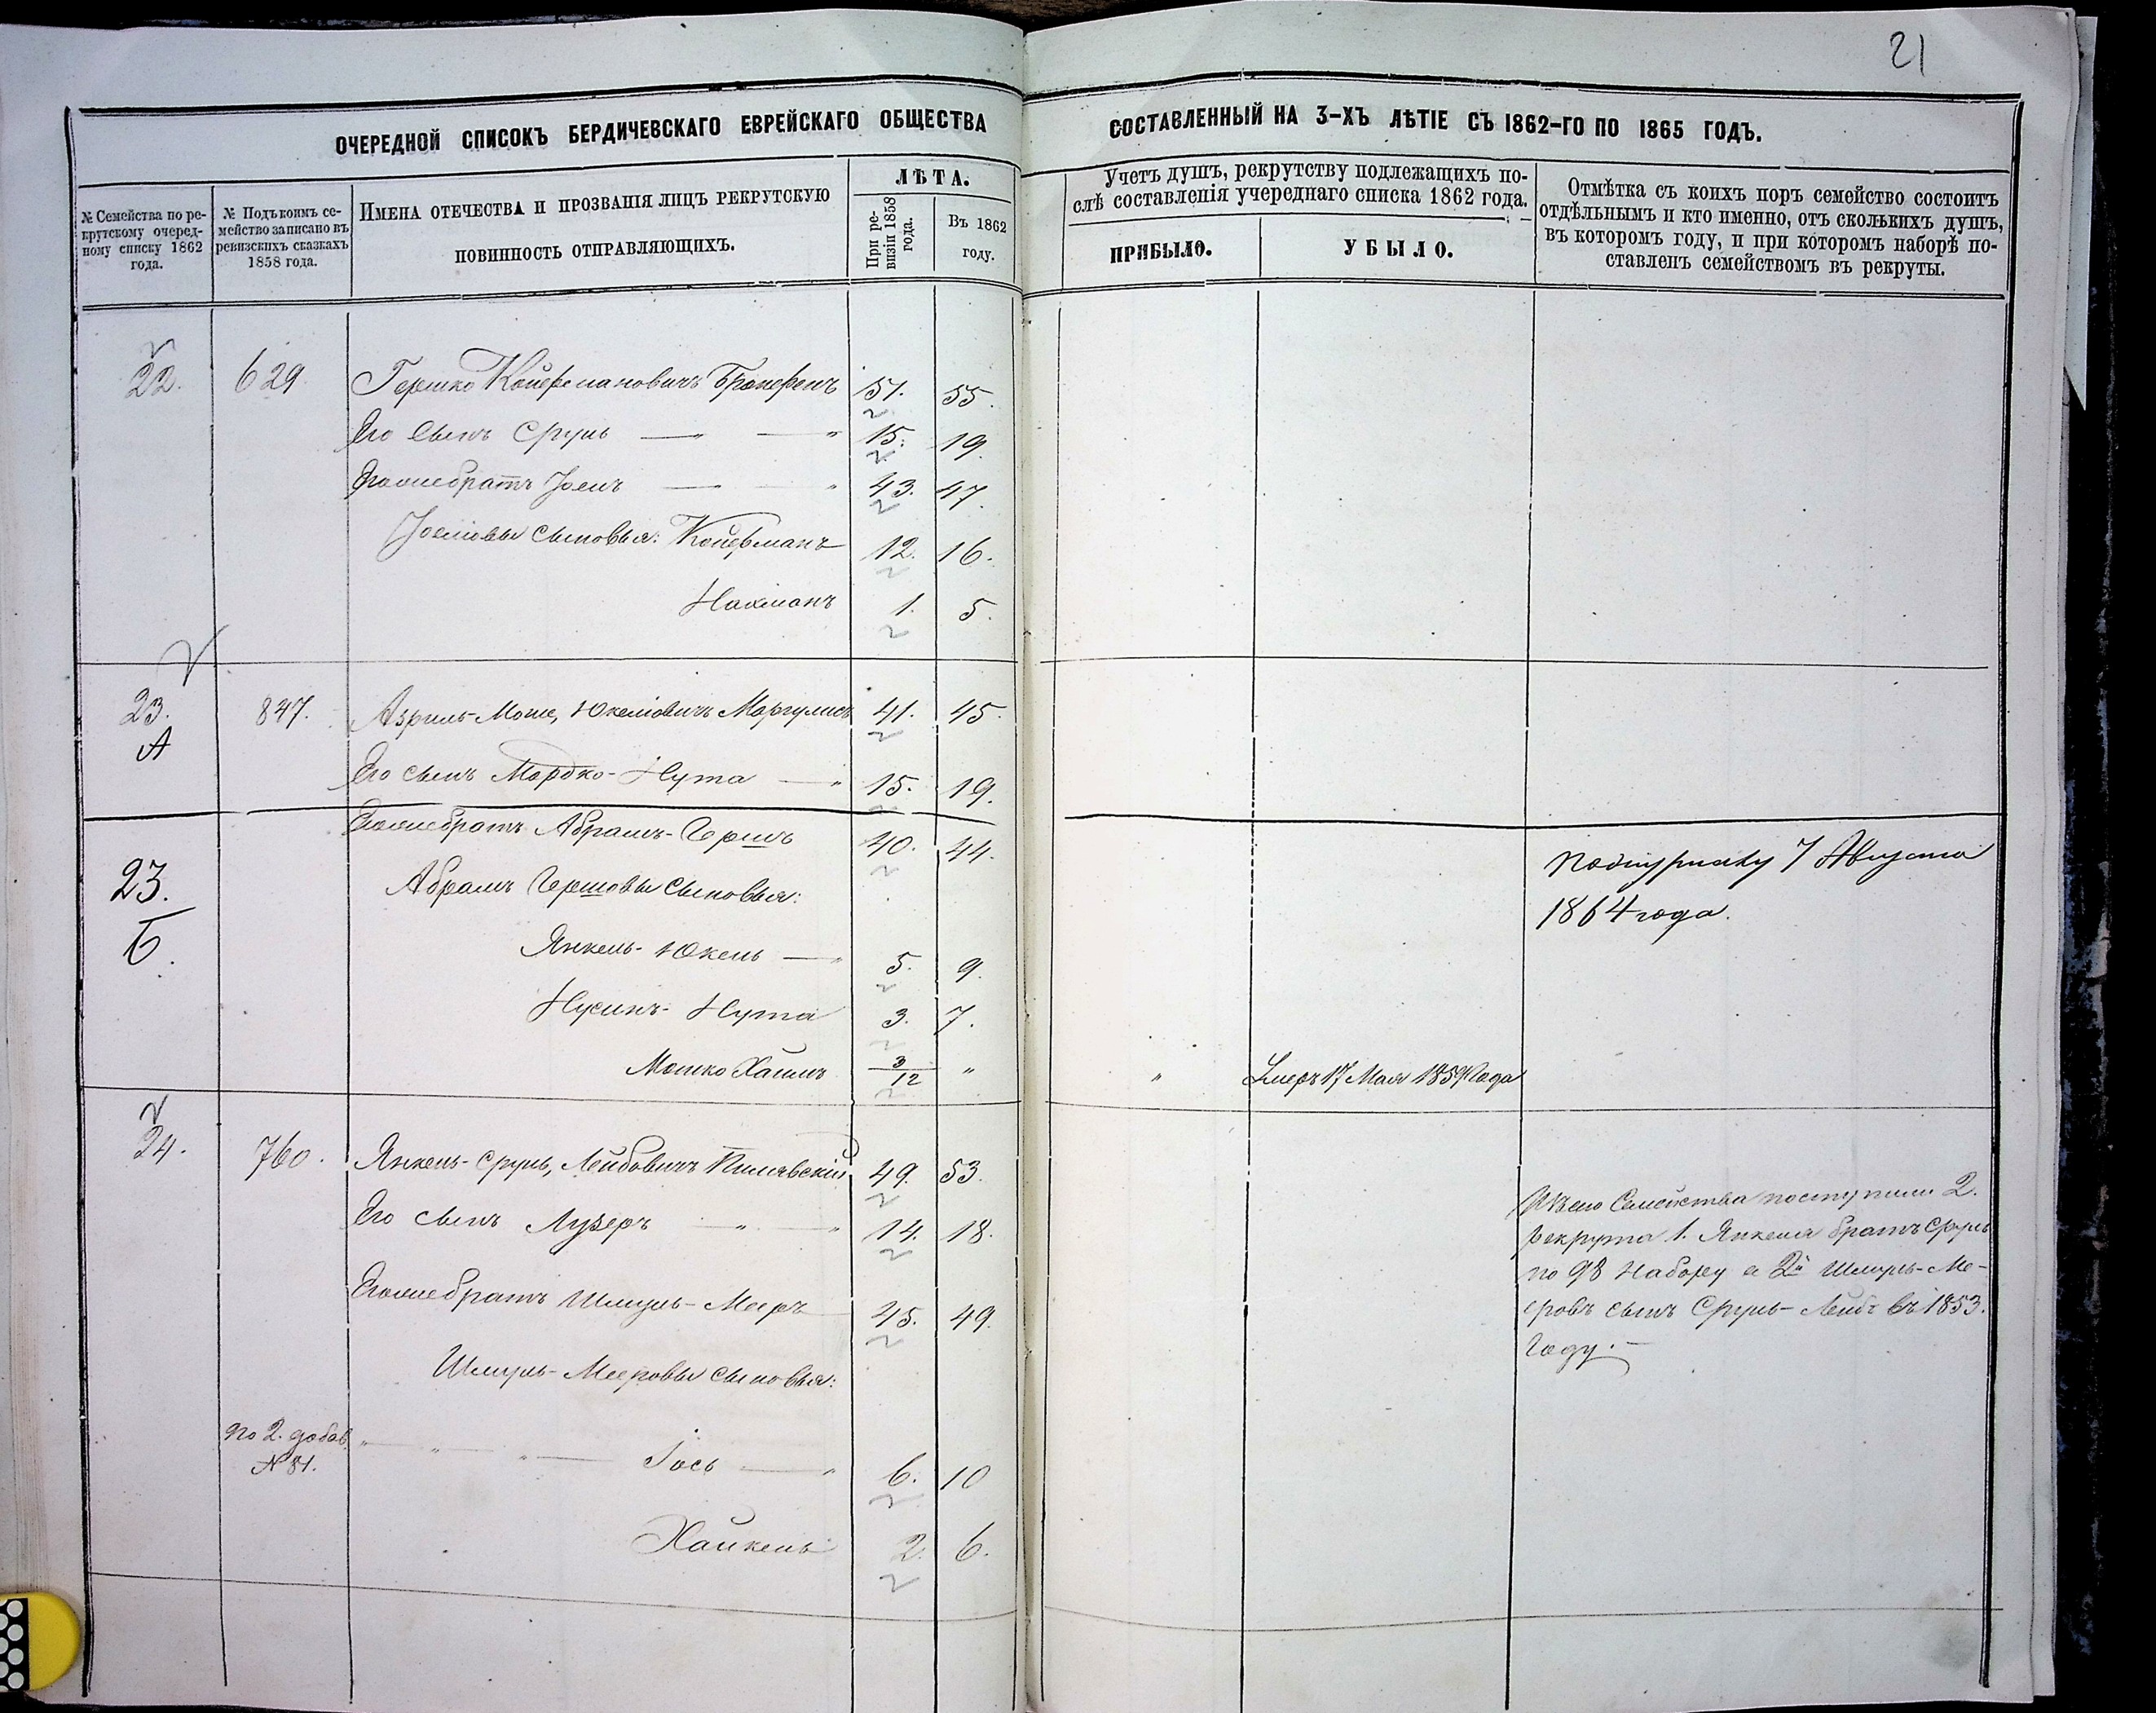 21
ОЧЕРЕДНОЙ СПИСОКЪ БЕРДИЧЕВСКАГО ЕВРЕЙСКАГО ОБЩЕСТВА
СОСТАВЛЕННЫЙ НА 3-ХЪ ЛѢТІЕ СЪ 1862-ГО ПО 1865 ГОДЪ.
№ Семейства по ре-
крутскому очеред-
ному списку 1862
года.
№ Подъ коимъ се-
мейство записано въ
ревизскихъ сказкахъ
1858 года.
ИМЕНА ОТЕЧЕСТВА И ПРОЗВАНІЯ ЛИЦЪ РЕКРУТСКУЮ
ПОВИННОСТЬ ОТПРАВЛЯЮЩИХЪ.
ЛѢТА.
При ре-
визіи 1858
года.
Въ 1862
году.
Учетъ душъ, рекрутству подлежащихъ по-
слѣ составленія учереднаго списка 1862 года.
ПРИБЫЛО.
УБЫЛО.
Отмѣтка съ коихъ поръ семейство состоитъ
отдѣльнымъ и кто именно, отъ сколькихъ душъ,
въ котором году, и при котором наборѣ по-
ставленъ семействомъ въ рекруты.
22. 629 Гершко Койфмановичъ 51. 55.
Его сынъ Сруль — — " 15. 19.
Его же братъ Іосъ — — " 43. 47.
сыновья: Койфманъ 12. 16.
Нахманъ 1. 5.
23. 847. Азриль-Моше, Юкелiовичъ Маргулисъ 41. 45.
А
Его сынъ Мордко-Нута — " 15. 19.
Его же братъ Абрамъ-Гершъ 40. 44.
23. Абрамъ Гершовы сыновья:
Б.
7 Августа
1864 года.
Янкель-Юкель — " 5. 9.
Нусинъ-Нута 3. 7.
Мошко Хаимъ 3/12 " " Умеръ 17 Мая 1859 года
24. 760. Янкель-Сруль, Лейбовичъ Пилявскій 49. 53.
Его сынъ Лузеръ — " — " 14. 18.
Его же братъ Шмуль-Мееръ 45. 49.
Шмуль-Мееровы сыновья:
Семейства поступили 2.
рекрута 1. Янкеля братъ Сруль
по 98 набору а 2й Шмуль-Ме-
еровъ сынъ Сруль-Лейбъ въ 1853.
году. —
по 2. добав. " — " — " — Іось — " 6. 10
№ 81.
Хайкель 2. 6.